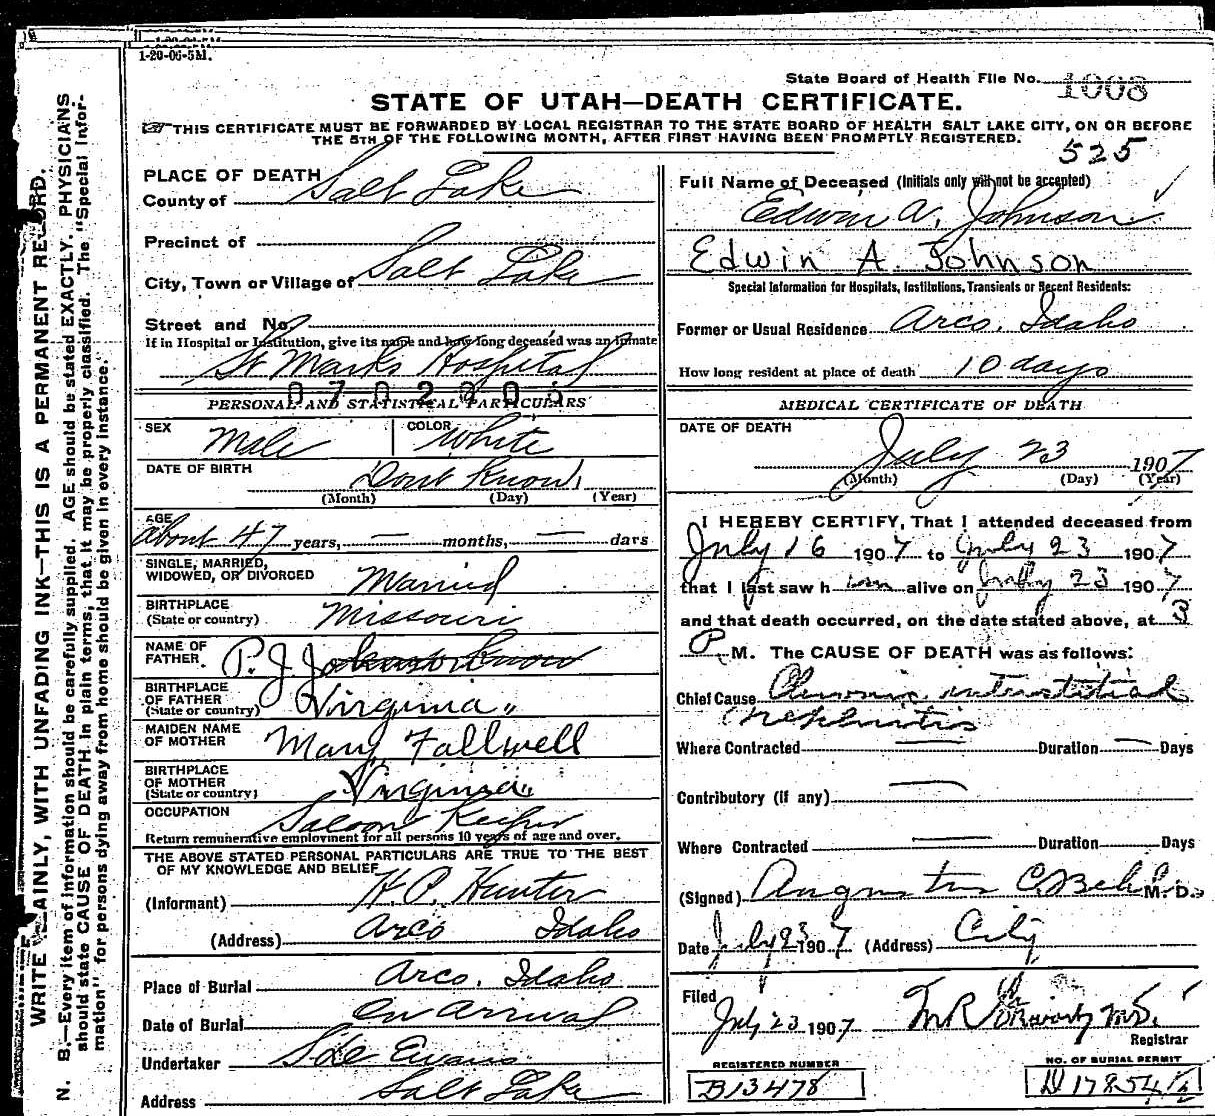 1-20-06-5M.
State Board of Health File No. 1008
STATE OF UTAH—DEATH CERTIFICATE.
THIS CERTIFICATE MUST BE FORWARDED BY LOCAL REGISTRAR TO THE STATE BOARD OF HEALTH SALT LAKE CITY, ON OR BEFORE
THE 5TH OF THE FOLLOWING MONTH, AFTER FIRST HAVING BEEN PROMPTLY REGISTERED.
525
WRITE PLAINLY, WITH UNFADING INK—THIS IS A PERMANENT RECORD.
N. B.—Every item of information should be carefully supplied. AGE should be stated EXACTLY. PHYSICIANS
should state CAUSE OF DEATH in plain terms, that it may be properly classified. The "Special Infor-
mation" for persons dying away from home should be given in every instance.
PLACE OF DEATH
County of Salt Lake
Precinct of
City, Town or Village of Salt Lake
Street and No.
If in Hospital or Institution, give its name and how long deceased was an inmate
St Marks Hospital
0702905
PERSONAL AND STATISTICAL PARTICULARS
SEX Male COLOR White
DATE OF BIRTH Dont Know
(Month) (Day) (Year)
AGE about 47 years, — months, — days
SINGLE, MARRIED,
WIDOWED, OR DIVORCED Married
BIRTHPLACE
(State or country) Missouri
NAME OF
FATHER. P. J. Johnson
BIRTHPLACE
OF FATHER
(State or country) Virginia
MAIDEN NAME
OF MOTHER Mary Fallwell
BIRTHPLACE
OF MOTHER
(State or country) Virginia
OCCUPATION Saloon Keeper
Return remunerative employment for all persons 10 years of age and over.
THE ABOVE STATED PERSONAL PARTICULARS ARE TRUE TO THE BEST
OF MY KNOWLEDGE AND BELIEF
(Informant) H. P. Hunter
(Address) Arco Idaho
Place of Burial Arco, Idaho
Date of Burial On Arrival
Undertaker S De Evans
Address Salt Lake
Full Name of Deceased (Initials only will not be accepted)
Edwin A. Johnson
Edwin A. Johnson
Special Information for Hospitals, Institutions, Transients or Recent Residents:
Former or Usual Residence Arco, Idaho
How long resident at place of death 10 days
MEDICAL CERTIFICATE OF DEATH
DATE OF DEATH
July 23 1907
(Month) (Day) (Year)
I HEREBY CERTIFY, That I attended deceased from
July 16 1907 to July 23 1907
that I last saw him alive on July 23 1907
and that death occurred, on the date stated above, at 3
P M. The CAUSE OF DEATH was as follows:
Chief Cause Chronic interstitial
nephritis
Where Contracted — Duration — Days
Contributory (if any) —
Where Contracted — Duration Days
(Signed) Augustus C. Behle M. D.
Date July 23 1907 (Address) City
Filed
July 23 1907
Registrar
REGISTERED NUMBER
B13478
NO. OF BURIAL PERMIT
D 17854½